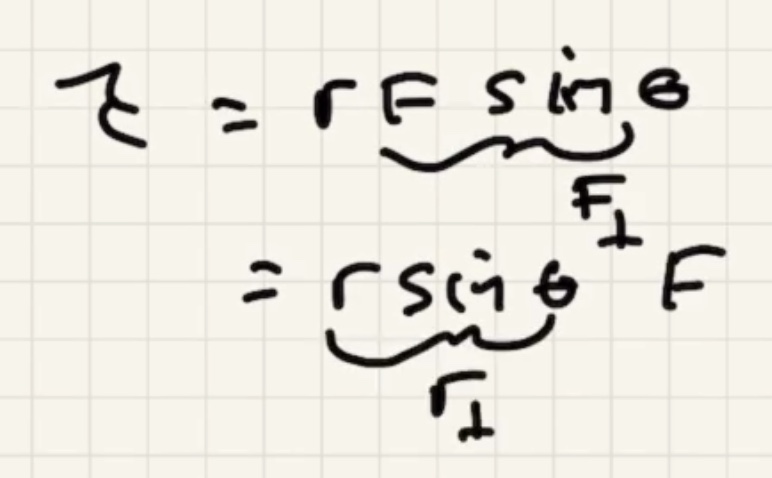 τ = r F sin θ
F⊥
= r sin θ F
r⊥